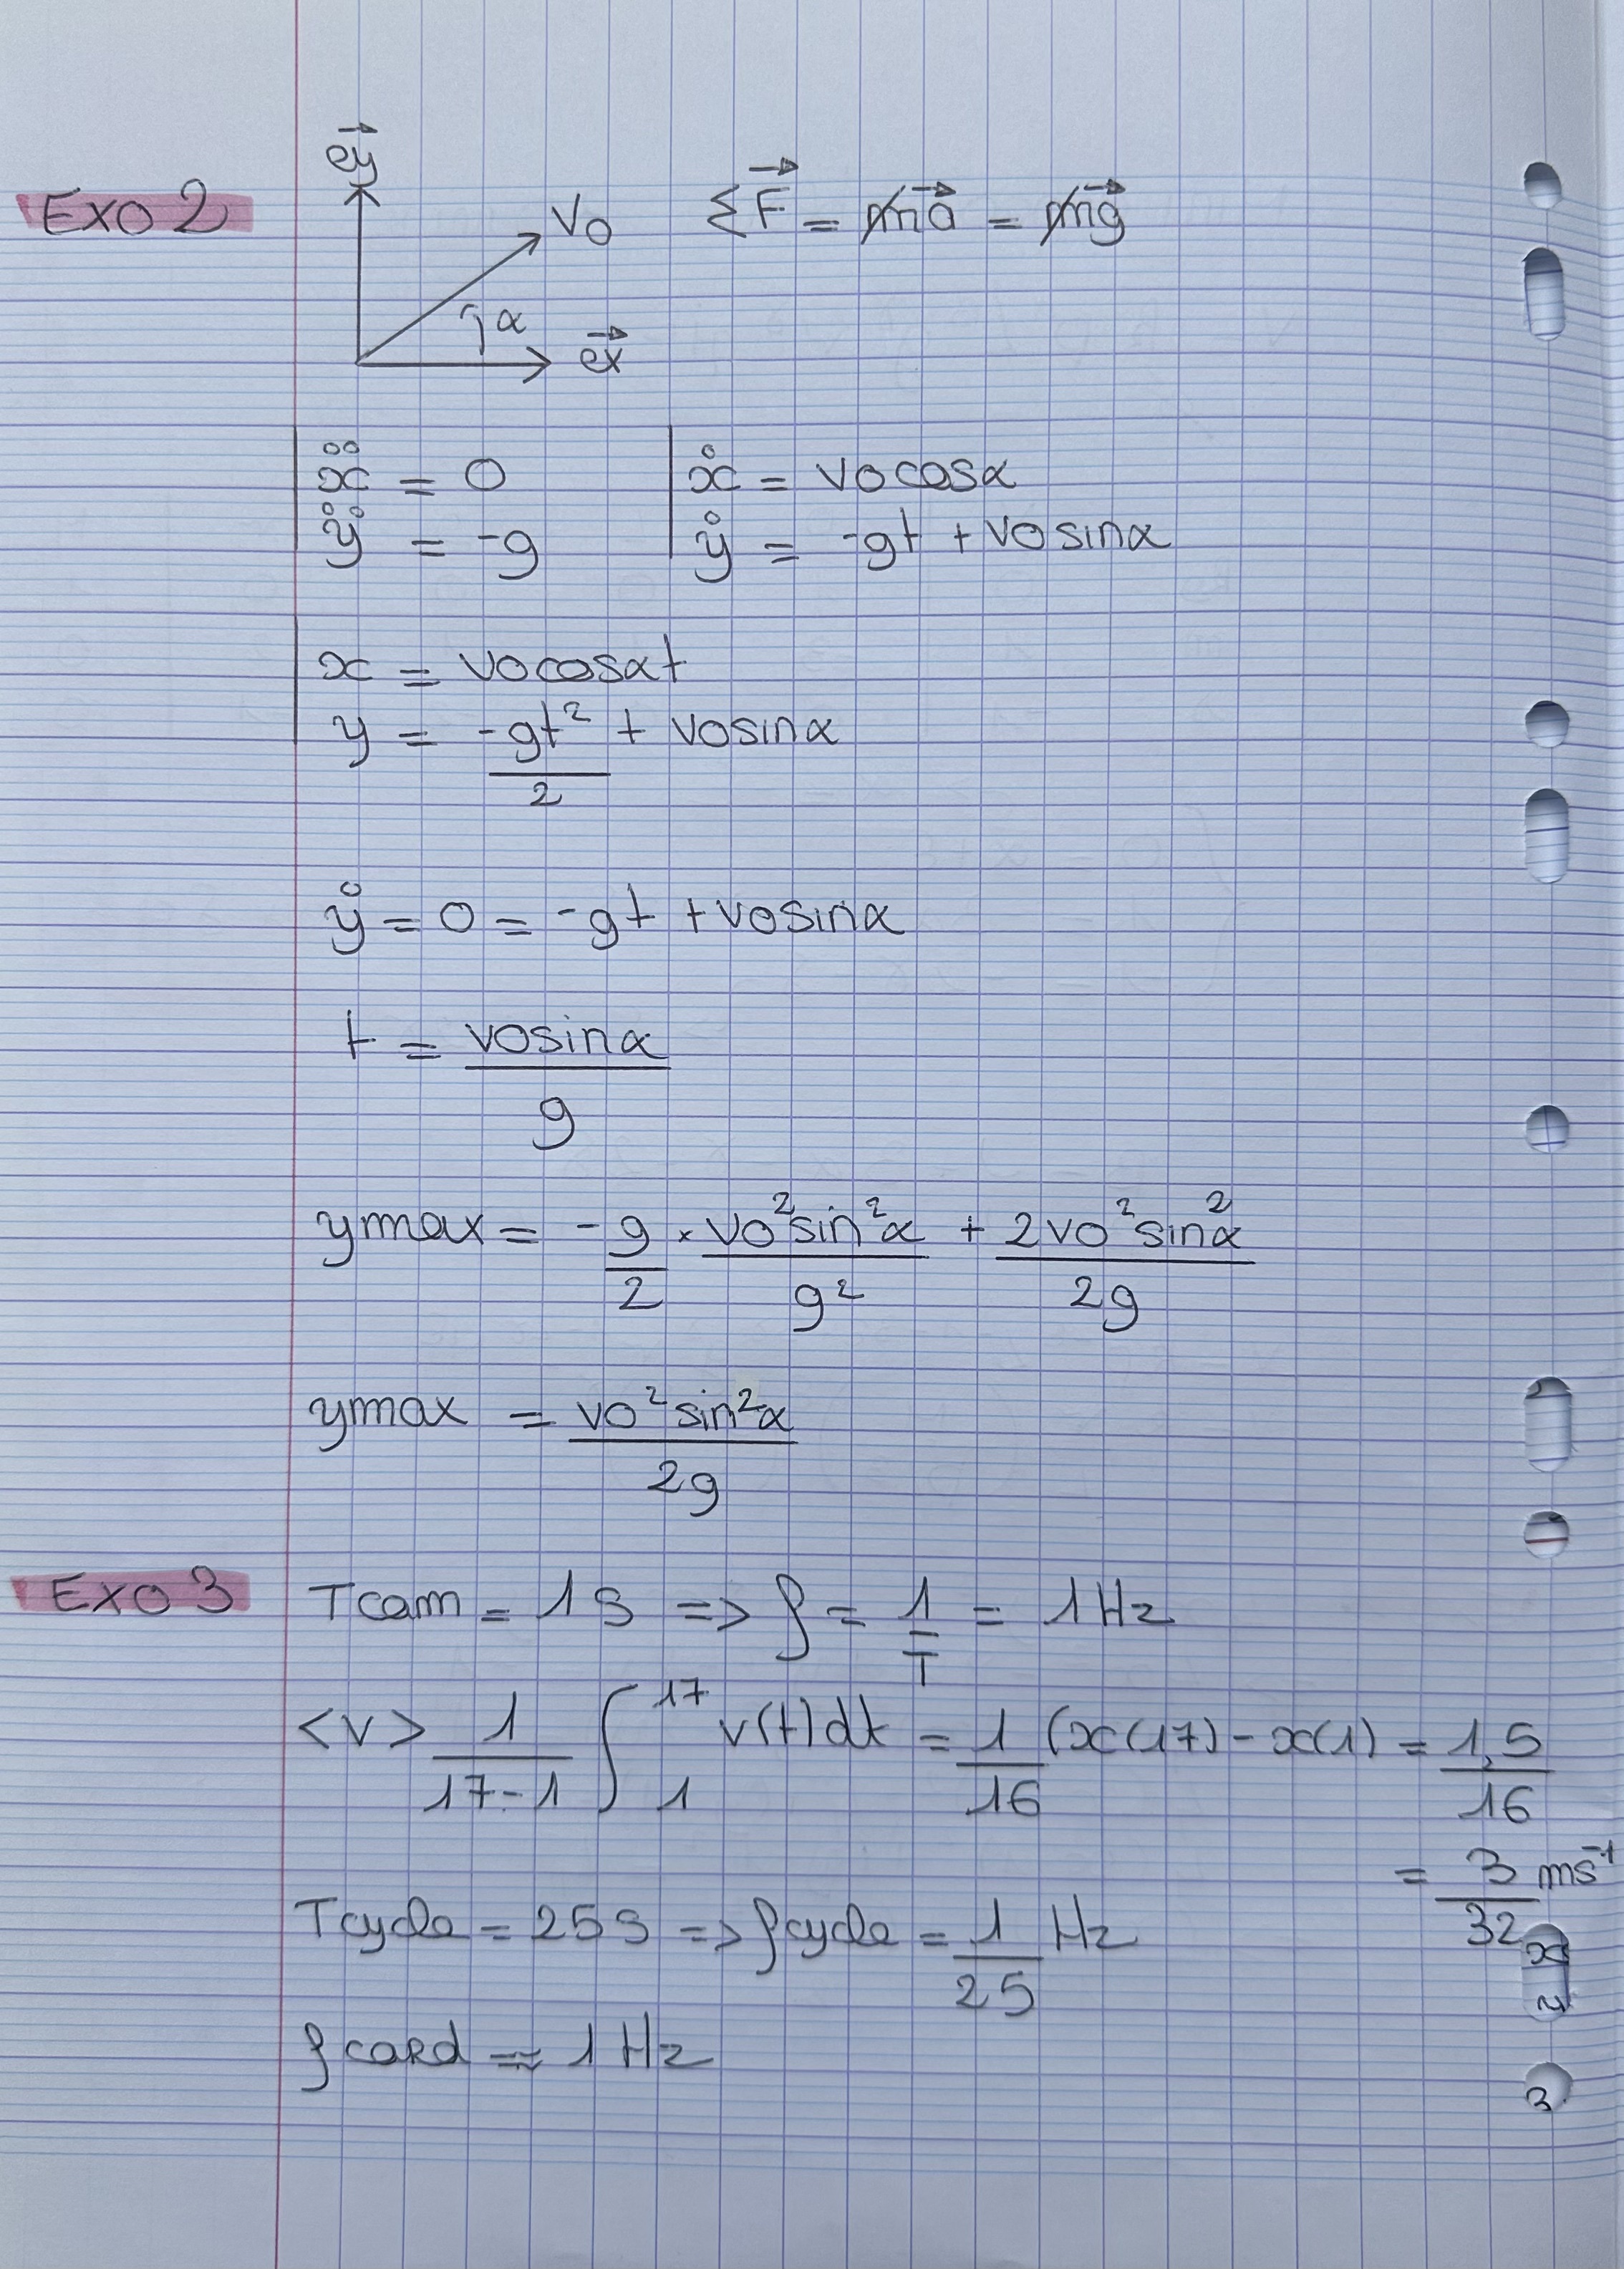 Exo 2
→ey
v0
α
→ex
Σ→F = m→a = m→g
ẍ = 0
ÿ = -g
ẋ = v0cosα
ẏ = -gt + v0sinα
x = v0cosαt
y = -gt²/2 + v0sinα
ẏ = 0 = -gt + v0sinα
t = v0sinα/g
ymax = -g/2 × v0²sin²α/g² + 2v0²sin²α/2g
ymax = v0²sin²α/2g
Exo 3
Tcam = 1s => f = 1/T = 1Hz
<v> 1/17-1 ∫₁¹⁷ v(t)dt = 1/16 (x(17) - x(1) = 1,5/16
= 3/32 ms⁻¹
Tcycle = 25s => fcycle = 1/25 Hz
fcard ≈ 1Hz